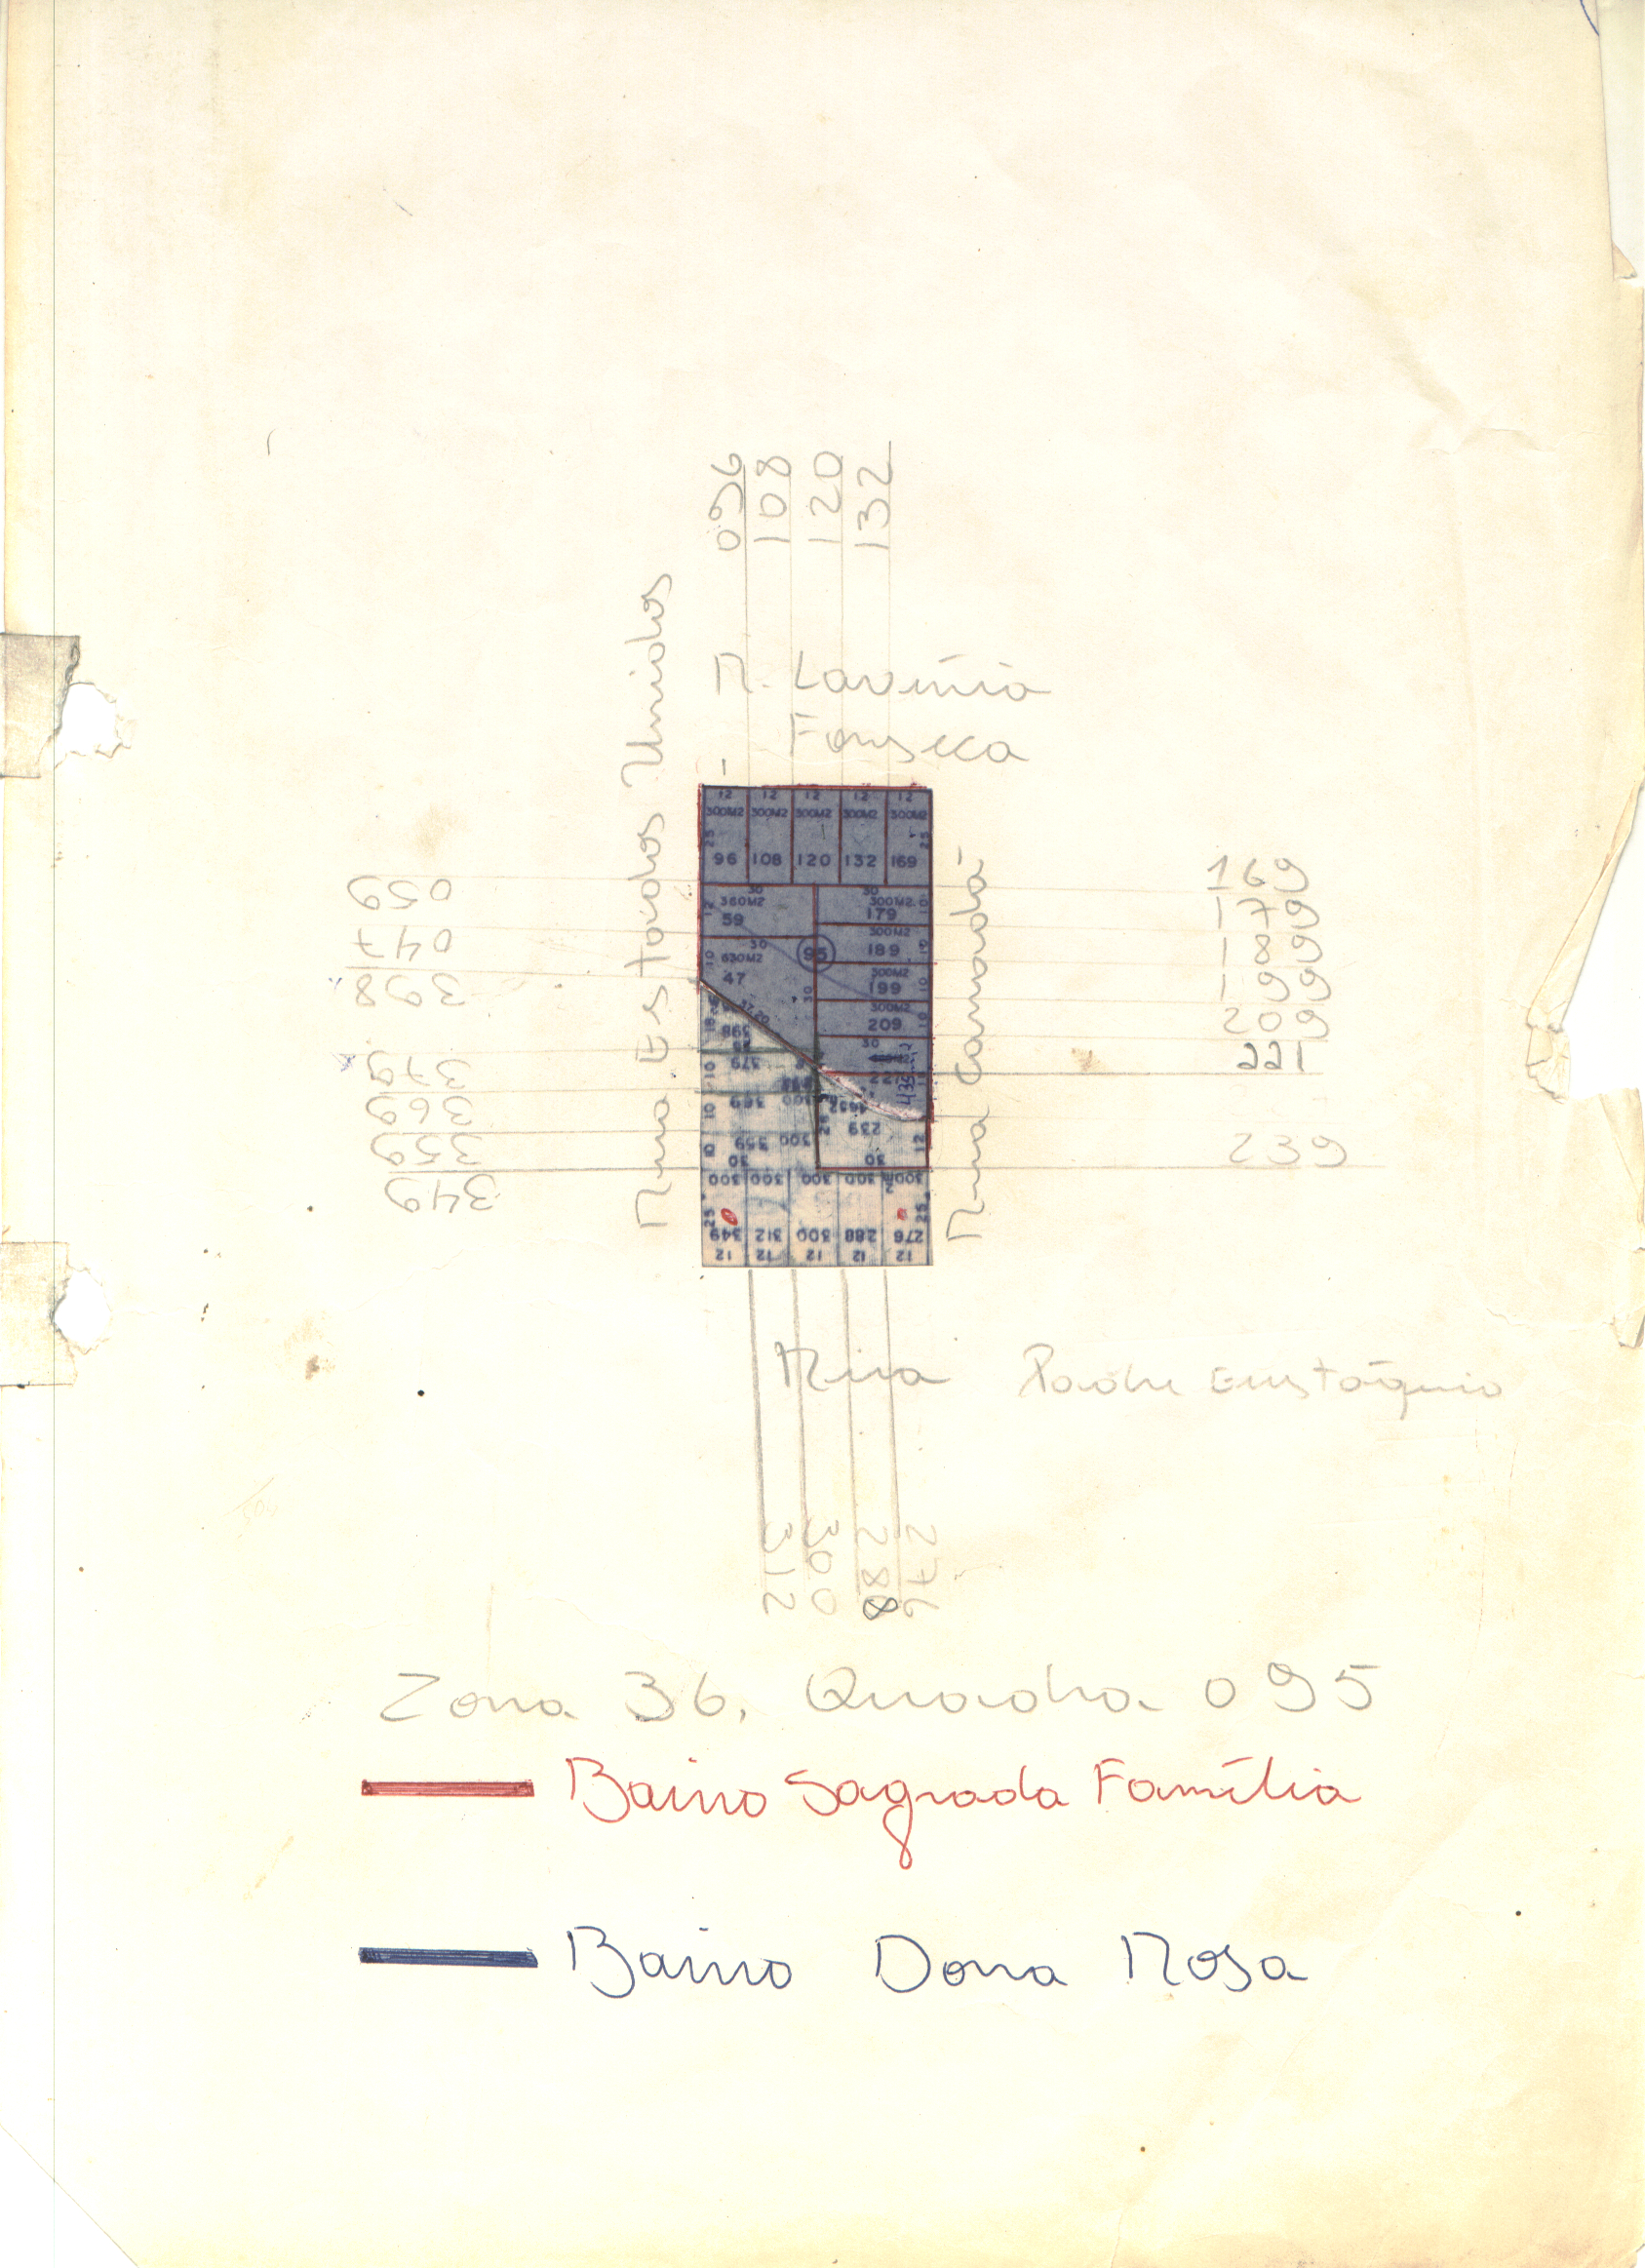 096
108
120
132
R. Lavínia
Fonseca
Rua Estados Unidos
Rua Canadá
059
047
398
379
369
359
349
169
179
189
199
209
221
239
12 12 12 12 12
300M2 300M2 300M2 300M2 300M2
25 25
96 108 120 132 169
30 30
360M2 300M2
12 59 179 10
300M2
30 95 189 10
630M2 300M2
10 47 199 10
30
300M2
37,20 209 10
30
398
10 379
10 369 300
239
10 359 300 12
30 30
300 300 300 300 300
25 25
349 312 300 288 276
12 12 12 12 12
Rua Padre Eustáquio
312
300
288
276
Zona 36, Quadra 095
Bairro Sagrada Família
Bairro Dona Rosa